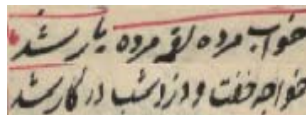 خواب مرده لقمه مرده یار شد
خواجه خفت و دزد شب در کار شد